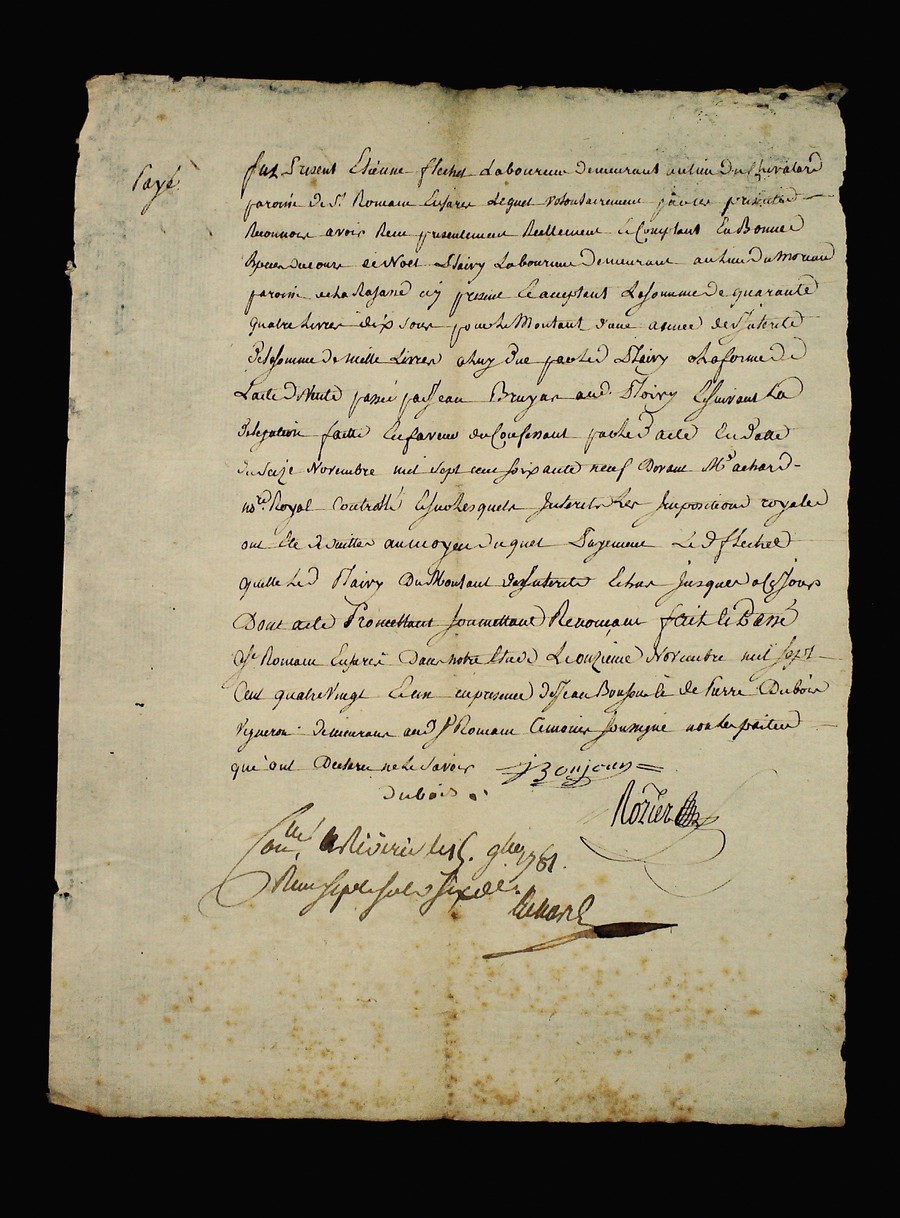 Payé
fut Present Etienne flechet Laboureur demeurant au lieu du
paroisse de St Romain Enjarez Lequel volontairement par ces presentes
Reconnois avoir Receu presentement Reellement & Comptant En Bonnes
Especes de Noel Laboureur demeurant au lieu du
paroisse de cy present & acceptant La somme de quarante
quatre Livres dix sous pour Le Montant d'une année des Interets
De la somme de mille Livres a luy Due par led a la forme de
L'acte De Vente passé par Jean Bruyas aud & suivant La
Delegation faitte En faveur du Confessant par led acte En Datte
du seize Novembre mil sept cent soixante neuf Devant Me achard
nore Royal Controllé & sur Lesquels Interets Les Impositions royales
ont Eté Deduittes au moyen duquel Payement Le d flechet
quitte Le d Du Montant des Interets Echus Jusques a ce Jour
Dont acte Promettant soumettant Renonçant fait & Passé
a St Romain Enjarez Dans notre Etude Le onzieme Novembre mil sept
Cent quatre vingt & un en presence de Jean & de Pierre Dubois
Vigneron demeurans aud St Romain temoins soussigné non Les parties
qui ont Declaré ne Le savoir JBonjour
dubois
Rozier
Conllé a Riverie le 15. 9bre 1781.
Reçu sept sols six drs
achard